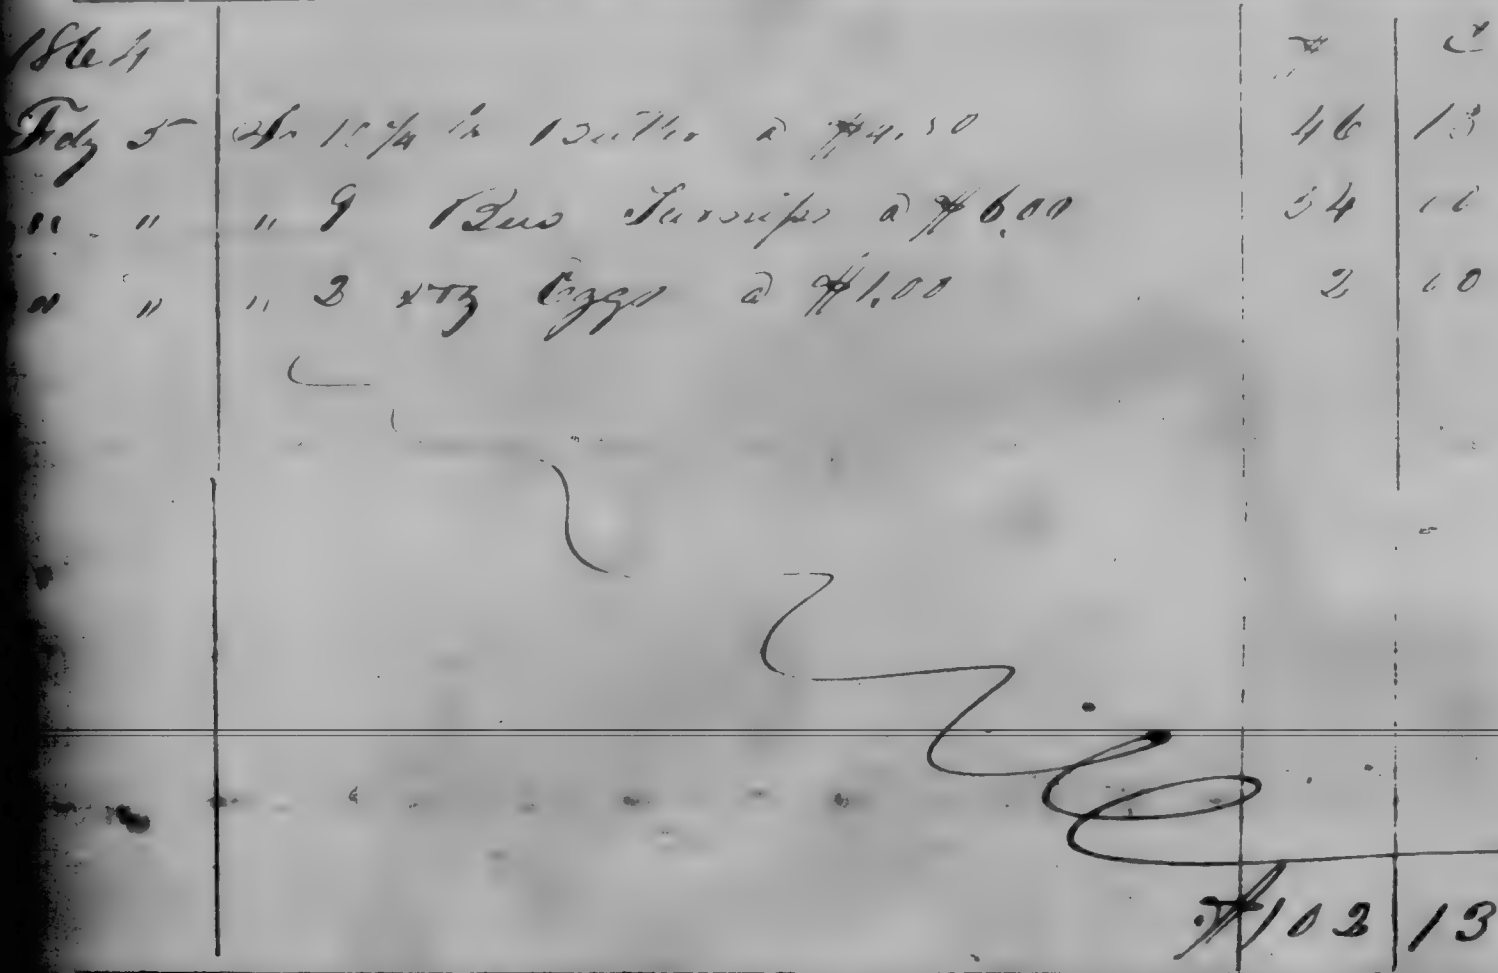 1864 $ ct
Feby 5 For 10 1/4 lbs Butter @ $4.50 46 13
" " " 9 Bus Turnips @ $6.00 54 00
" " " 2 Doz Eggs @ $1.00 2 00
$102 13